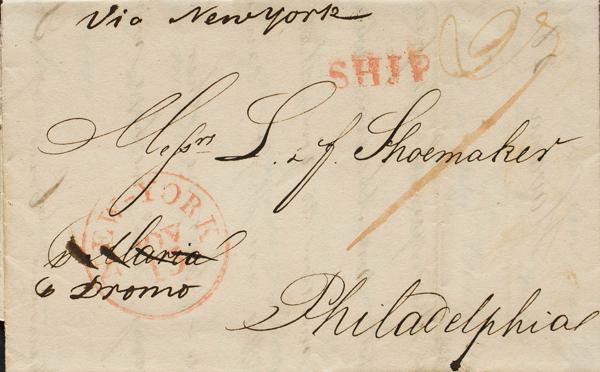 Via New York
SHIP
Messrs S. & J. Shoemaker
NEW-YORK
NOV
13
Maria
Dromo
Philadelphia